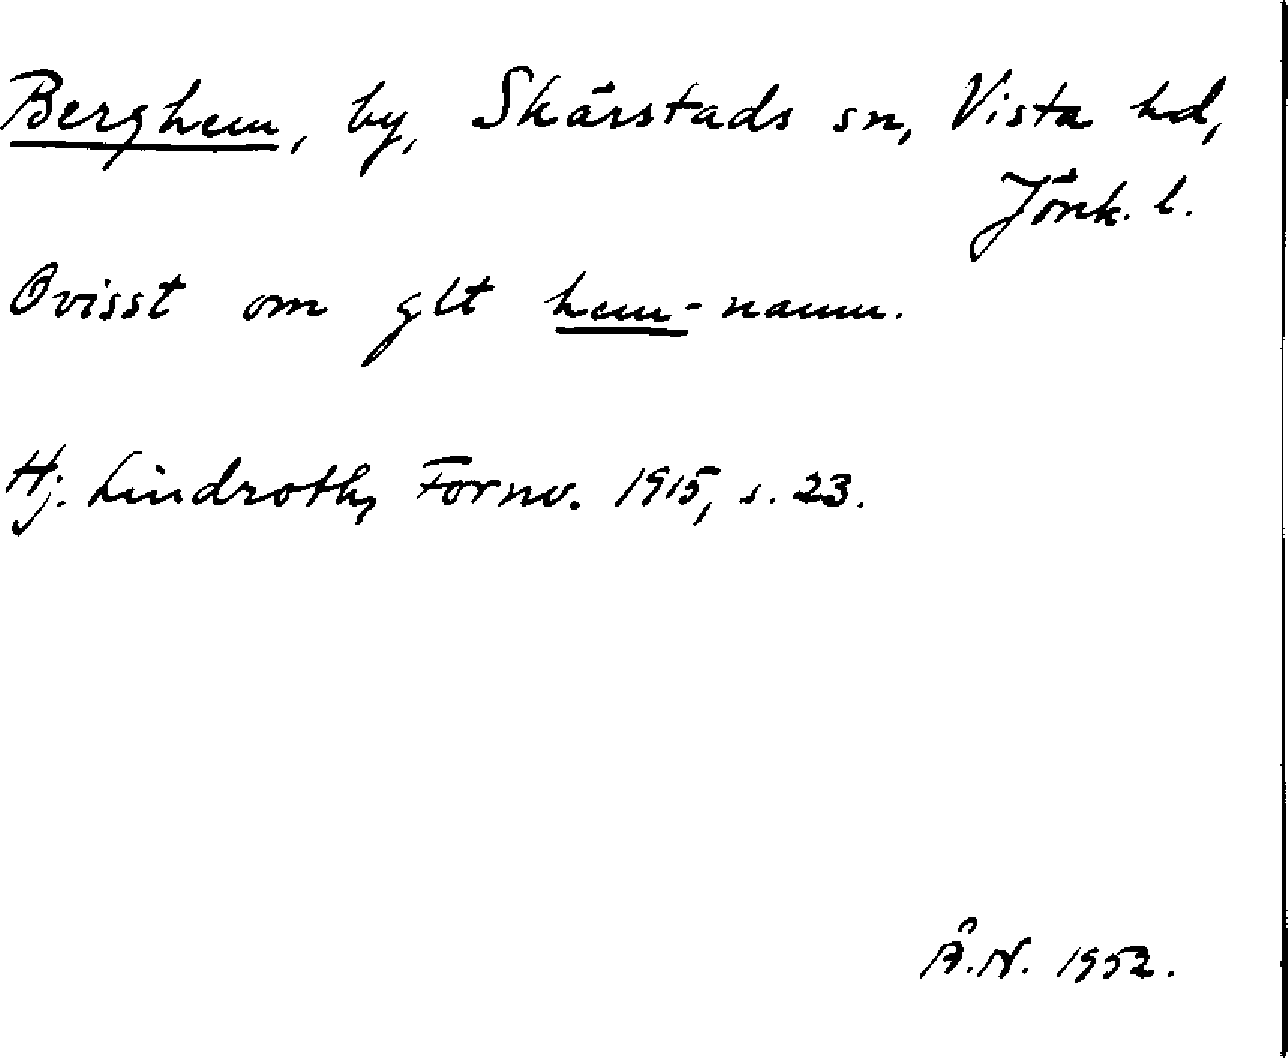 Berghem, by, Skärstads sn, Vista hd,
Jönk. l.
Ovisst om glt hem-namn.
Hj. Lindroth, Fornv. 1915, s. 23.
Å.N. 1952.